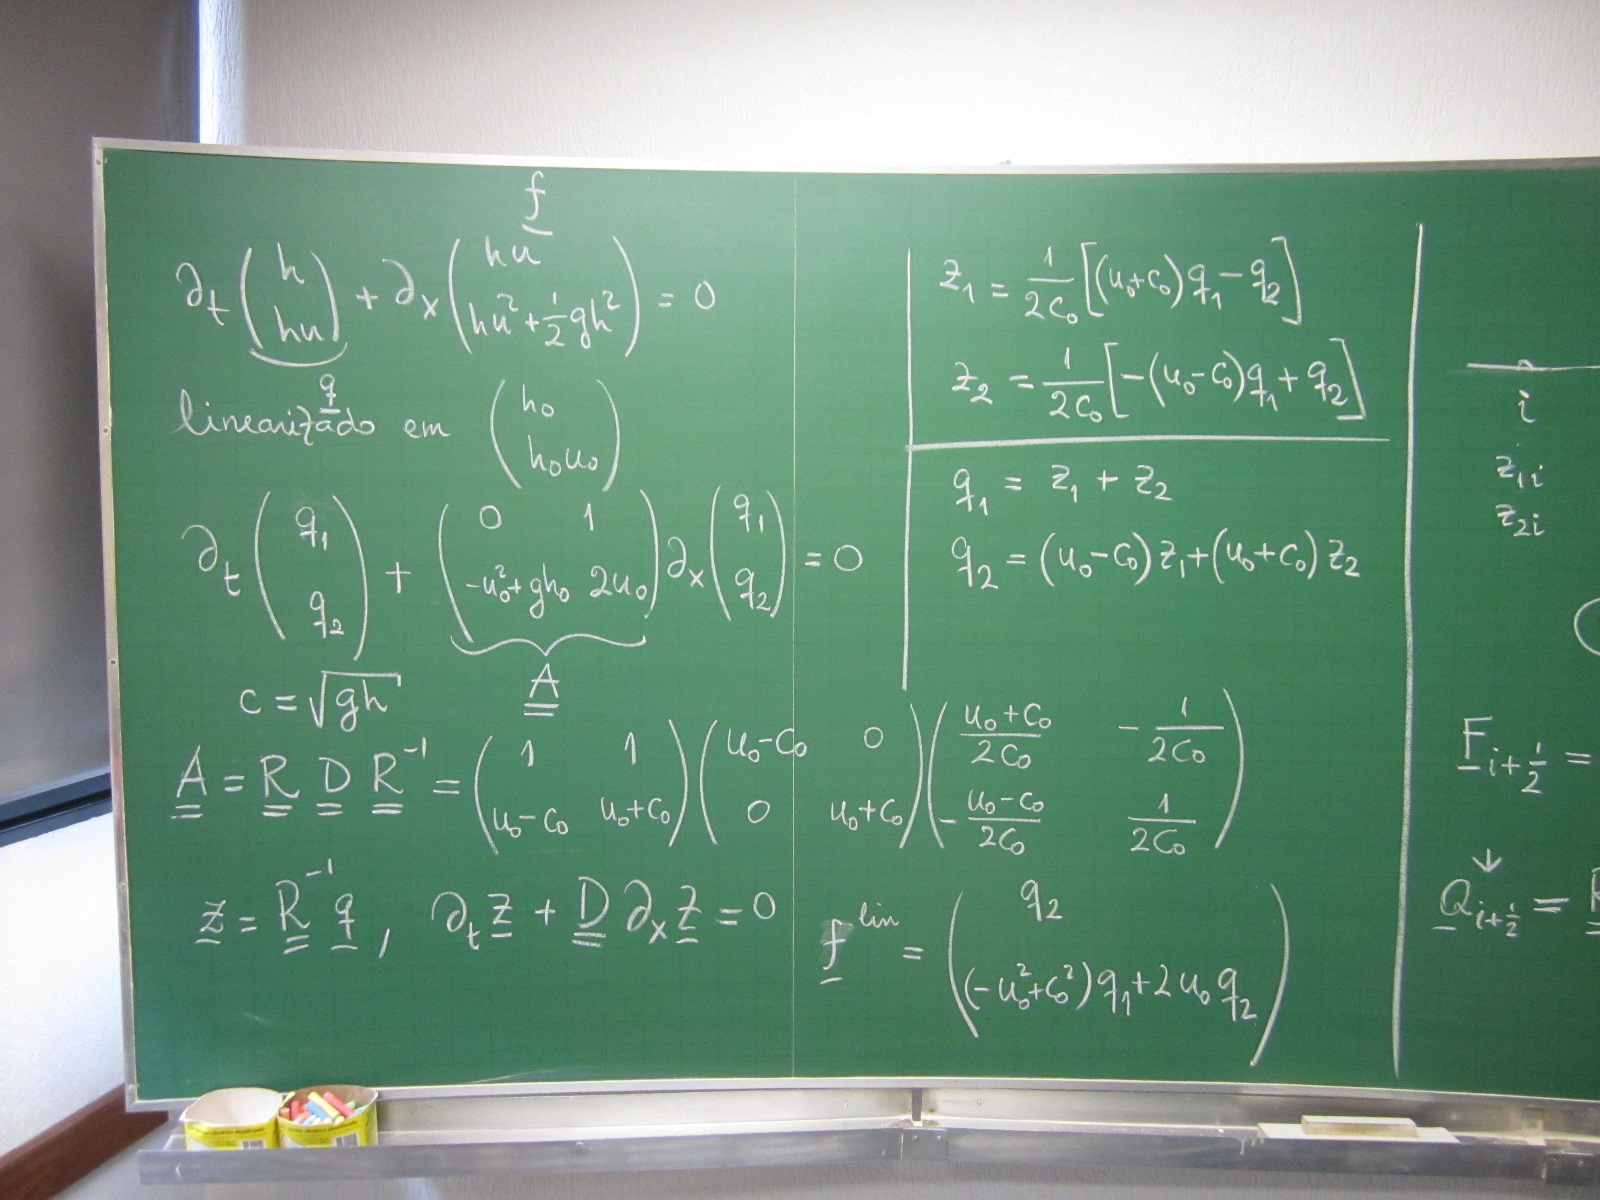 f
∂t (h hu) + ∂x (hu hu² + 1/2 gh²) = 0
q
linearizado em (h₀ h₀u₀)
∂t (q₁ q₂) + (0 1 -u₀²+gh₀ 2u₀) ∂x (q₁ q₂) = 0
A
c = √gh
A = R D R⁻¹ = (1 1 u₀-c₀ u₀+c₀) (u₀-c₀ 0 0 u₀+c₀) ((u₀+c₀)/2c₀ -1/2c₀ -(u₀-c₀)/2c₀ 1/2c₀)
z = R⁻¹ q, ∂t z + D ∂x z = 0
f lin = (q₂ (-u₀²+c₀²)q₁+2u₀q₂)
z₁ = 1/2c₀ [(u₀+c₀)q₁-q₂]
z₂ = 1/2c₀ [-(u₀-c₀)q₁+q₂]
q₁ = z₁ + z₂
q₂ = (u₀-c₀)z₁+(u₀+c₀)z₂
i
z₁i
z₂i
F i+1/2 =
↓
Q i+1/2 = R